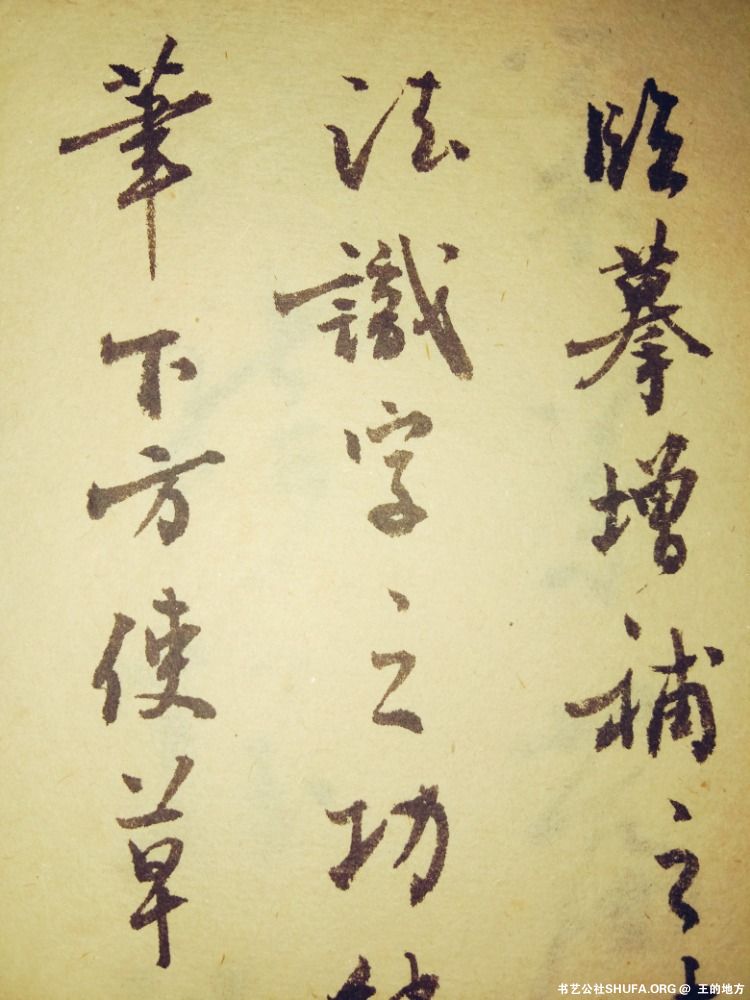 臨摹增補之
法識字之功
筆下方使草
书艺公社SHUFA.ORG @ 王的地方